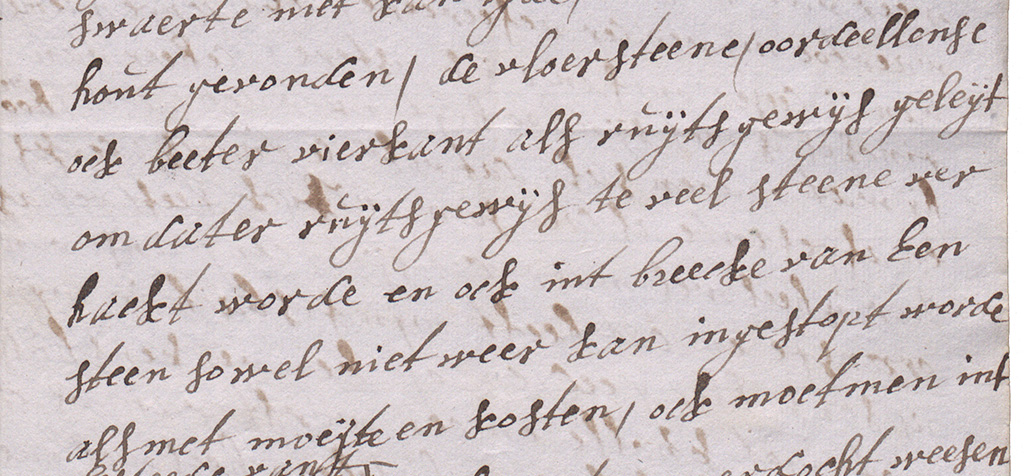 swaerte niet kan
hout gevonden / de vloersteene / oordeellense
ock beeter vierkant als ruijtsgewijs geleijt
om dater ruijtsgewijs te veel steene ver
hackt worde en ock int breecke van Een
steen sowel niet weer kan ingestopt worde
als met moeijte en kosten / ock moetmen int
weesen